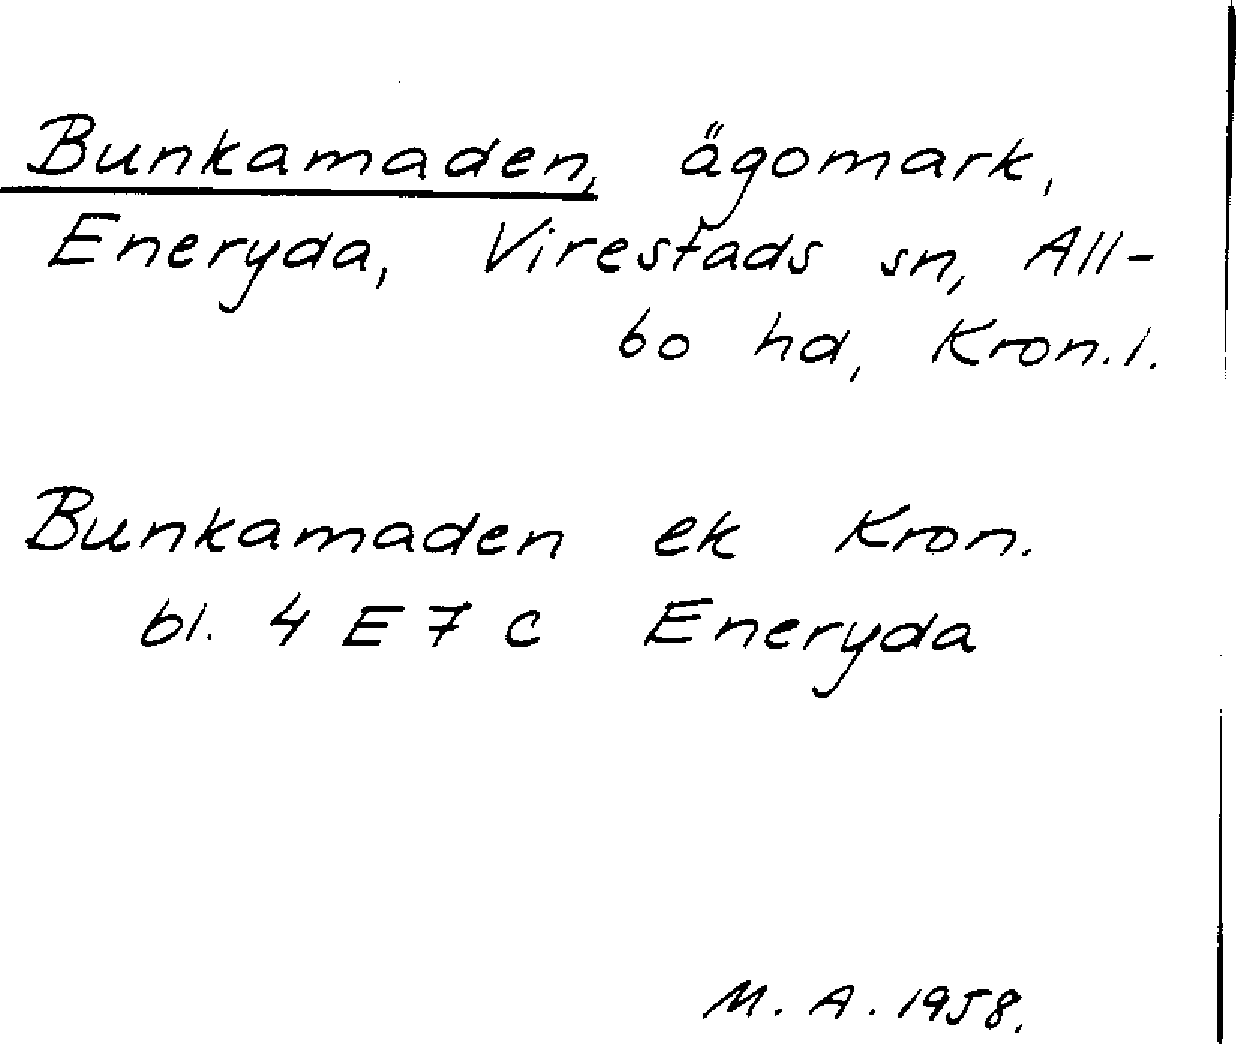 Bunkamaden, ägomark,
Eneryda, Virestads sn, All-
bo hd, Kron.l.
Bunkamaden ek Kron.
bl. 4 E 7 c Eneryda
M. A. 1958.